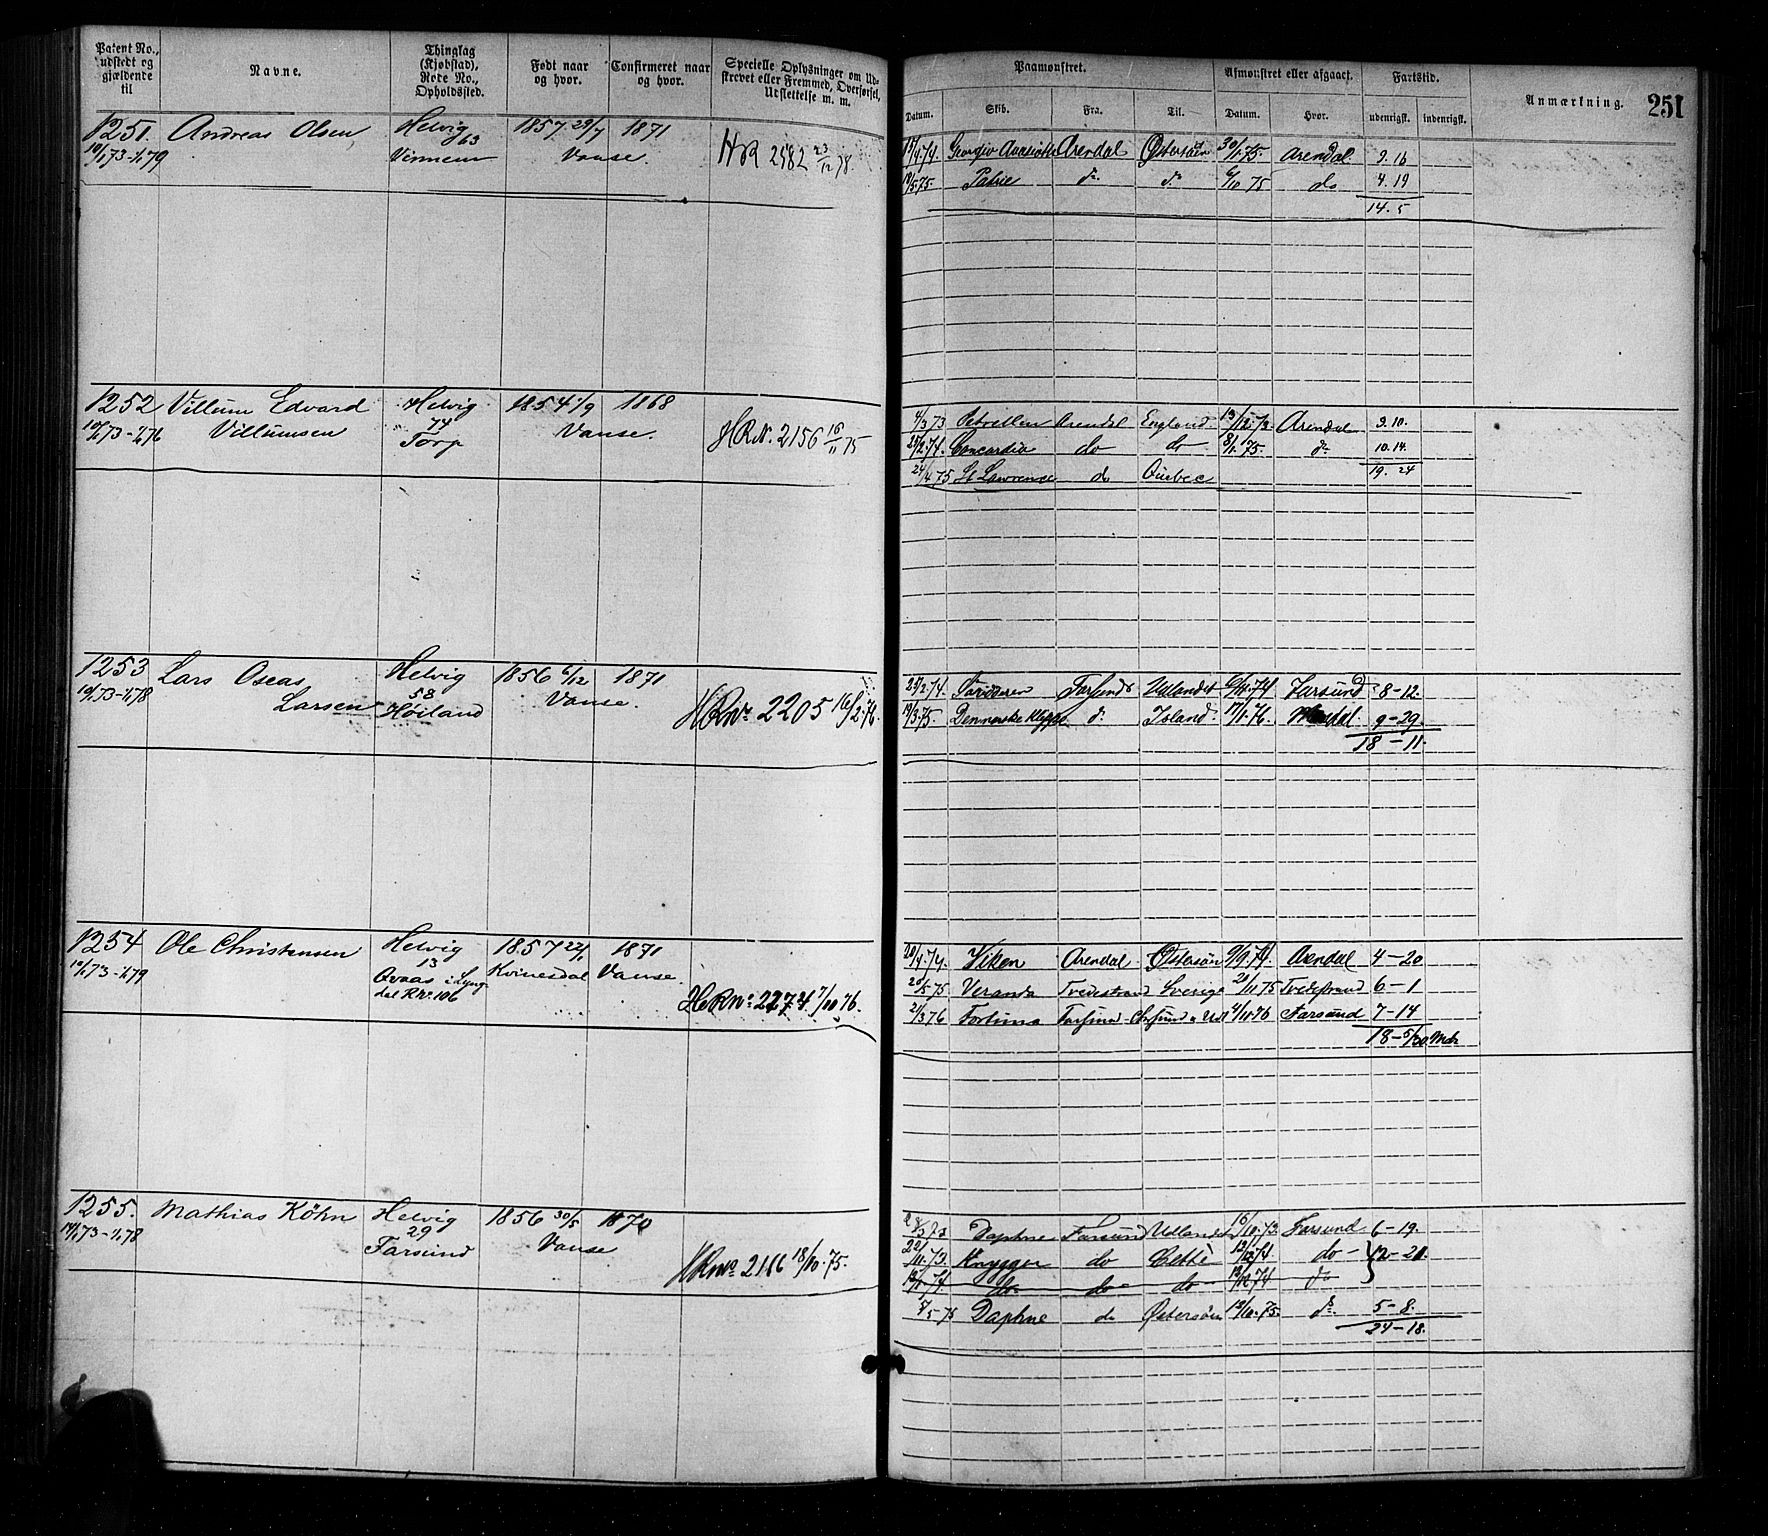 Patent No., udstedt og gjældende til
Navne.
Thinglag (Kjøbstad), Rode No., Opholdssted.
Født naar og hvor.
Confirmeret naar og hvor.
Specielle Oplysninger om Udskrevet eller Fremmed, Overførsel, Udslettelse m. m.
Paamønstret.
Afmønstret eller afgaaet.
Fartstid.
Anmærkning.
251
Datum. Skib. Fra. Til. Datum. Hvor. udenrigsk. indenrigsk.
1251. Andreas Olsen, Helvig 1857 29/7 1871
10/1 73-1/1 79 63 Vanse.
HR 2582 23/12 78.
Arendal Østersøen 30/1 75. Arendal 9. 16
19/5 75. Patrie do do 6/10 75 do 4. 19
14. 5
1252 Villum Edvard Helvig 1854 1/9 1868
10/1 73-1/1 76 Villumsen 74 Torp Vanse.
HRN. 2156 16/11 75
4/3 73 Arendal England 13/12 73 Arendal 9. 10.
28/2 74. Concordia do do 8/1 75. do 10. 14.
19. 24
24/4 75 St Lawrence do Quebec
1253 Lars Oseas Helvig 1856 6/12 1871
10/1 73-1/1 78 Larsen 58 Høiland Vanse.
HRNo. 2205 16/2 76
28/2 74. Farsund Udlandet 6/11 74 Farsund 8-12.
19/3 75. do Island. 17/1 76. 9-29.
18-11.
1254 Ole Christensen Helvig 1857 22/1 1871
10/1 73-1/1 79 13 Kvinesdal Vanse
Qvaas i Lyngdal R No. 106
HRNo. 2274 7/11 76.
20/4 74. Viken Arendal Østersøn 9/9 74. Arendal 4-20
20/5 75 Veranda Tvedestrand Sverige 21/11 75 Tvedestrand 6-1
2/3 76 Fortuna Farsund 4/11 76 Farsund 7-14
18-5/30 Mdr
1255. Mathias Köhn Helvig 1856 30/5 1870
14/1 73-1/1 78 29 Farsund Vanse
HRNo. 2116 18/10 75.
Daphne Farsund Udlandet 6/10 73. Farsund 6-19.
22/11 73. Knyggen do Cette 12/12 74. do 12-21.
do do 12/12 74 do
8/5 75 Daphne do Østersøn 12/10 75. do 5-8.
24-18.